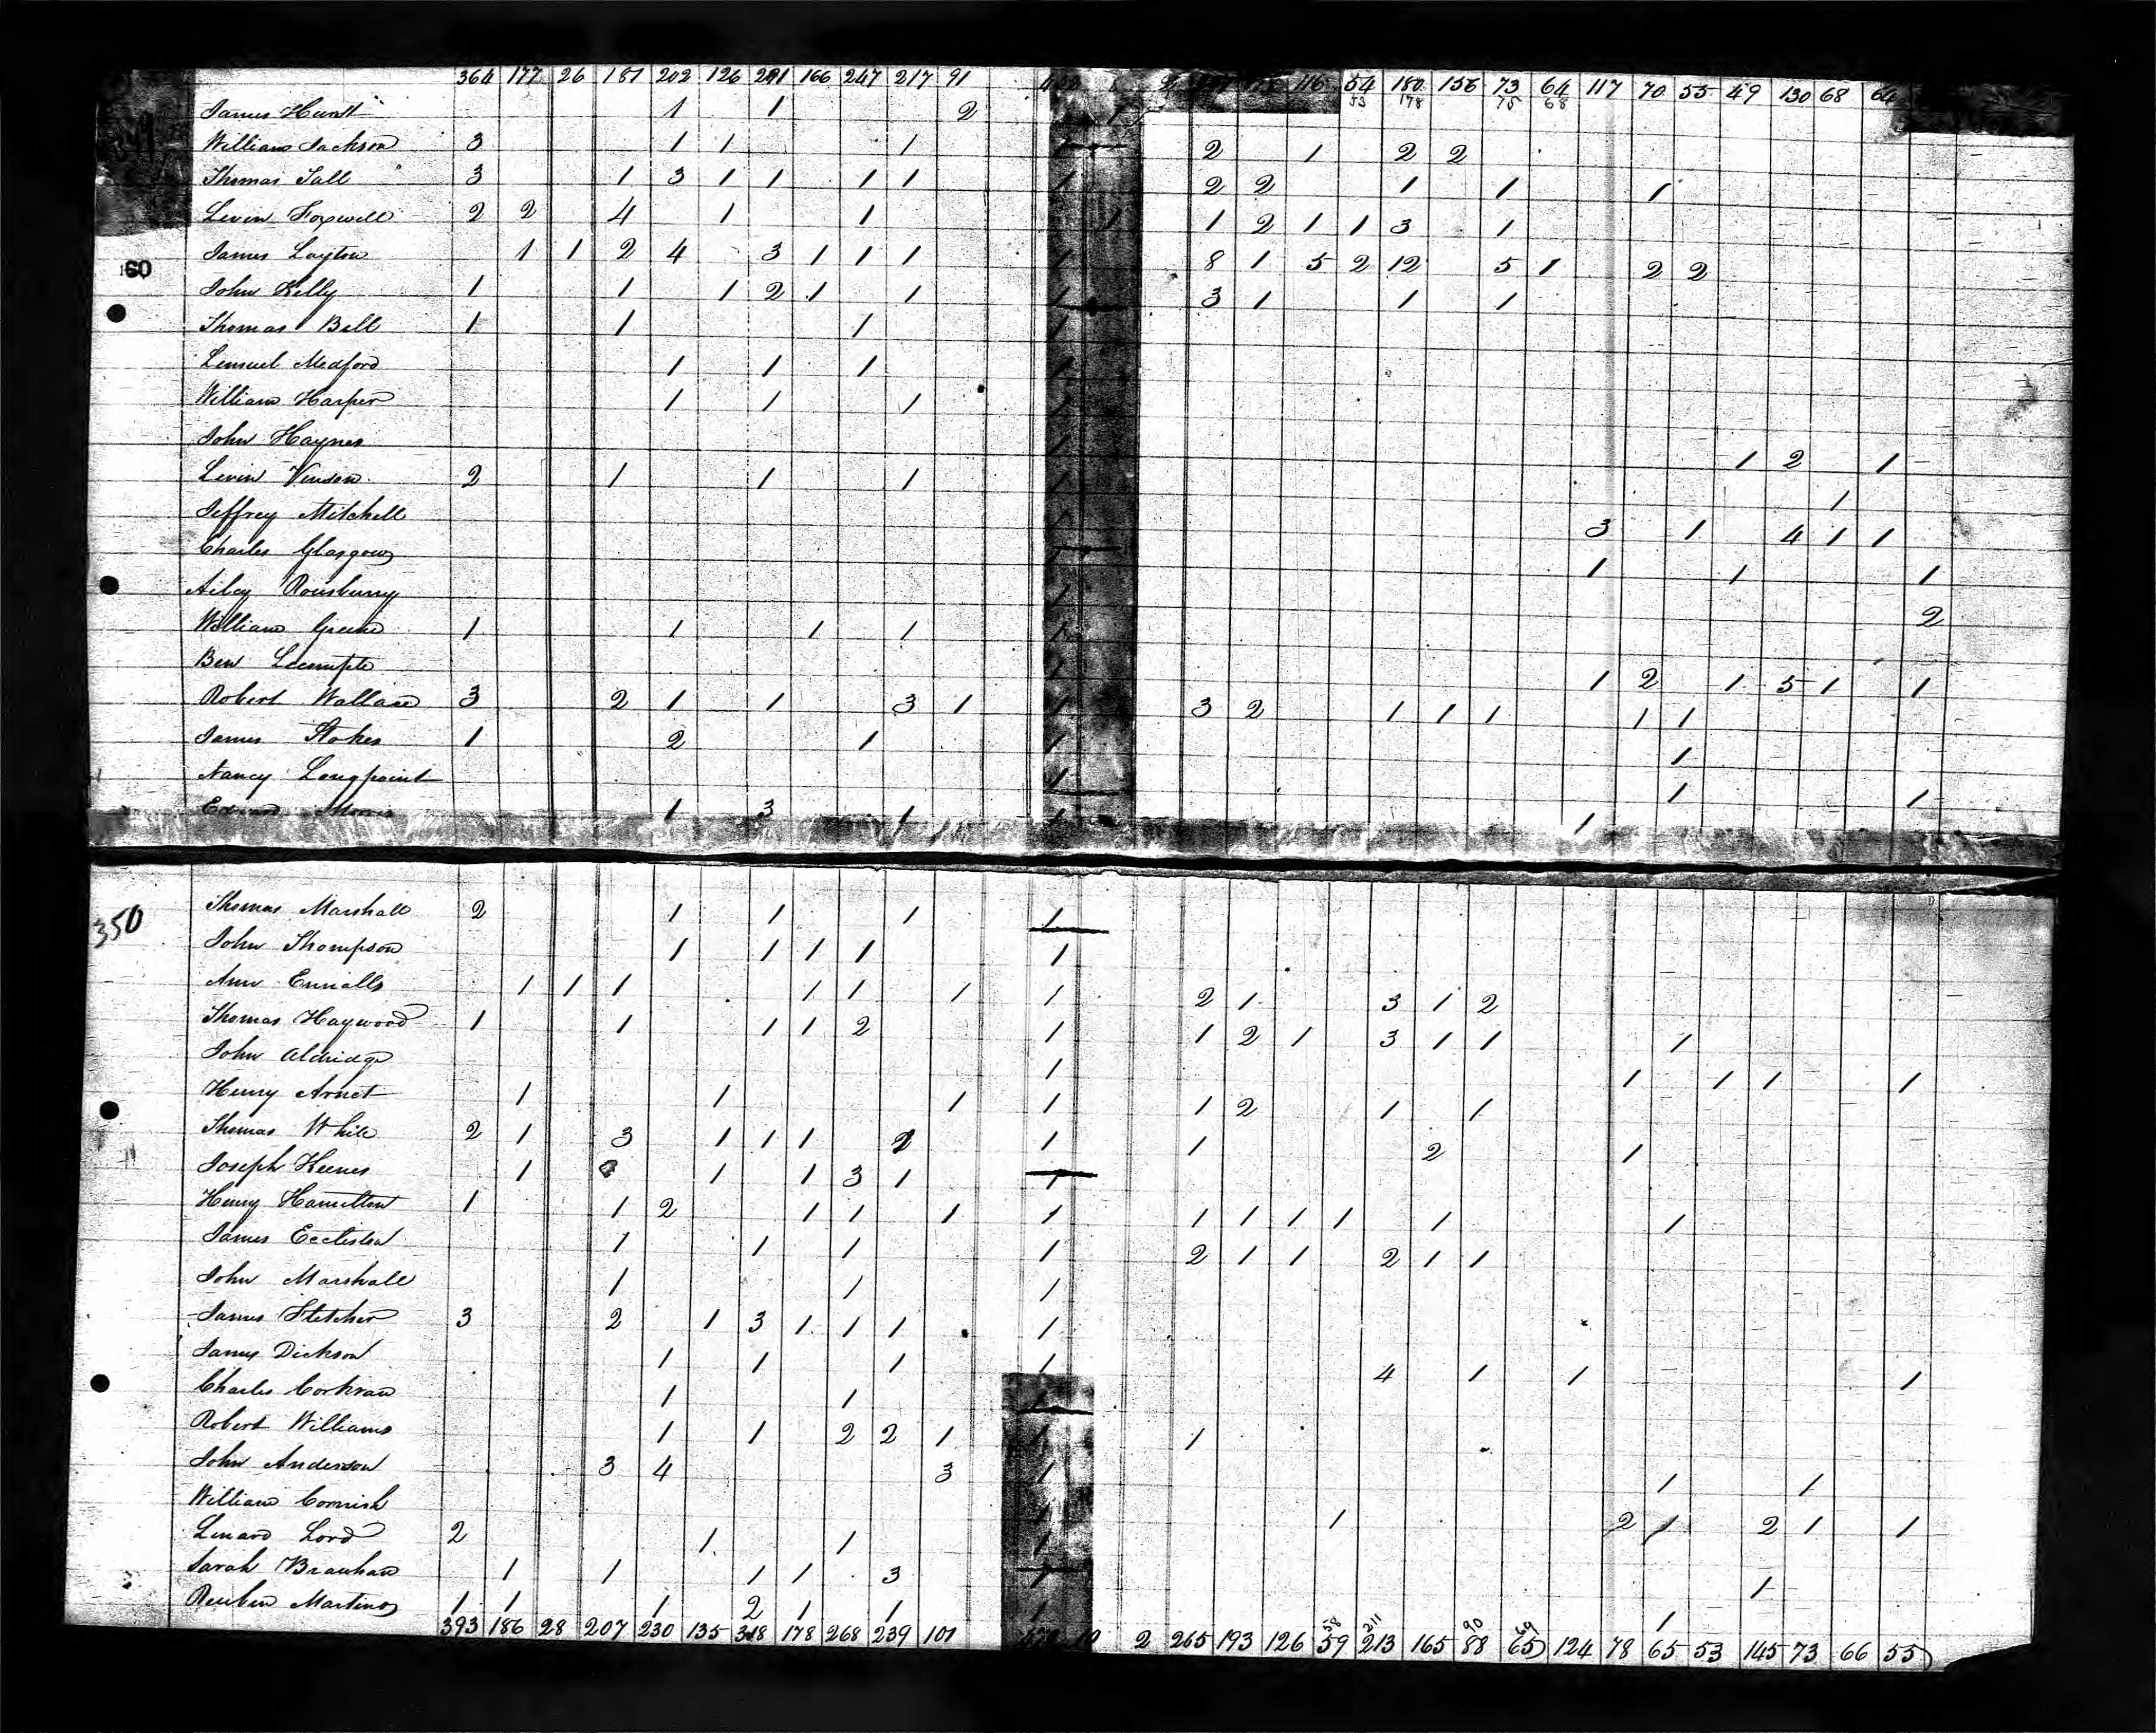 364 177 26 187 202 126 291 166 247 217 91 116 54 180 156 73 64 117 70 55 49 130 68 64
53 178 75 68
James Hunt 1 1 2
William Jackson 3 1 1 1 2 1 2 2
Thomas Tall 3 1 3 1 1 1 1 1 2 2 1 1 1
Levin Foxwell 2 2 4 1 1 1 1 2 1 1 3 1
James Layton 1 1 2 4 3 1 1 1 1 8 1 5 2 12 5 1 2 2
60
John Kelly 1 1 1 2 1 1 1 3 1 1 1
Thomas Bell 1 1 1 1
Lemuel Medford 1 1 1 1
William Harper 1 1 1 1
John Haynes 1 1 2 1
Levin Vinson 2 1 1 1 1 1
Jeffrey Mitchell 1 3 1 4 1 1
Charles Glasgow 1 1 1 1
Ailcy Rousburry 1 2
William Greene 1 1 1 1 1
Ben Lecompte 1 1 2 1 5 1 1
Robert Wallace 3 2 1 1 3 1 1 3 2 1 1 1 1 1
James Stokes 1 2 1 1 1
Nancy Longpoint 1 1 1
Edward Morris 1 3 1 1 1
350
Thomas Marshall 2 1 1 1 1
John Thompson 1 1 1 1 1
Ann Ennalls 1 1 1 1 1 1 1 2 1 3 1 2
Thomas Haywood 1 1 1 1 2 1 1 2 1 3 1 1 1
John Aldridge 1 1 1 1 1
Henry Arnet 1 1 1 1 1 2 1 1
Thomas White 2 1 3 1 1 1 2 1 1 2 1
Joseph Keenes 1 1 1 3 1 1
Henry Hamilton 1 1 2 1 1 1 1 1 1 1 1 1 1
James Eccleston 1 1 1 1 2 1 1 2 1 1
John Marshall 1 1 1
James Fletcher 3 2 1 3 1 1 1 1
James Dickson 1 1 1 1 4 1 1 1
Charles Corkran 1 1 1
Robert Williams 1 1 2 2 1 1 1
John Anderson 3 4 3 1 1 1
William Cornish 1 1 2 1 2 1 1
Linard Lord 2 1 1 1
Sarah Branhan 1 1 1 1 3 1 1
Reuben Martin 1 1 1 2 1 1 1 1
58 211 90 69
393 186 28 207 230 135 318 178 268 239 101 10 2 265 193 126 59 213 165 88 65 124 78 65 53 145 73 66 55